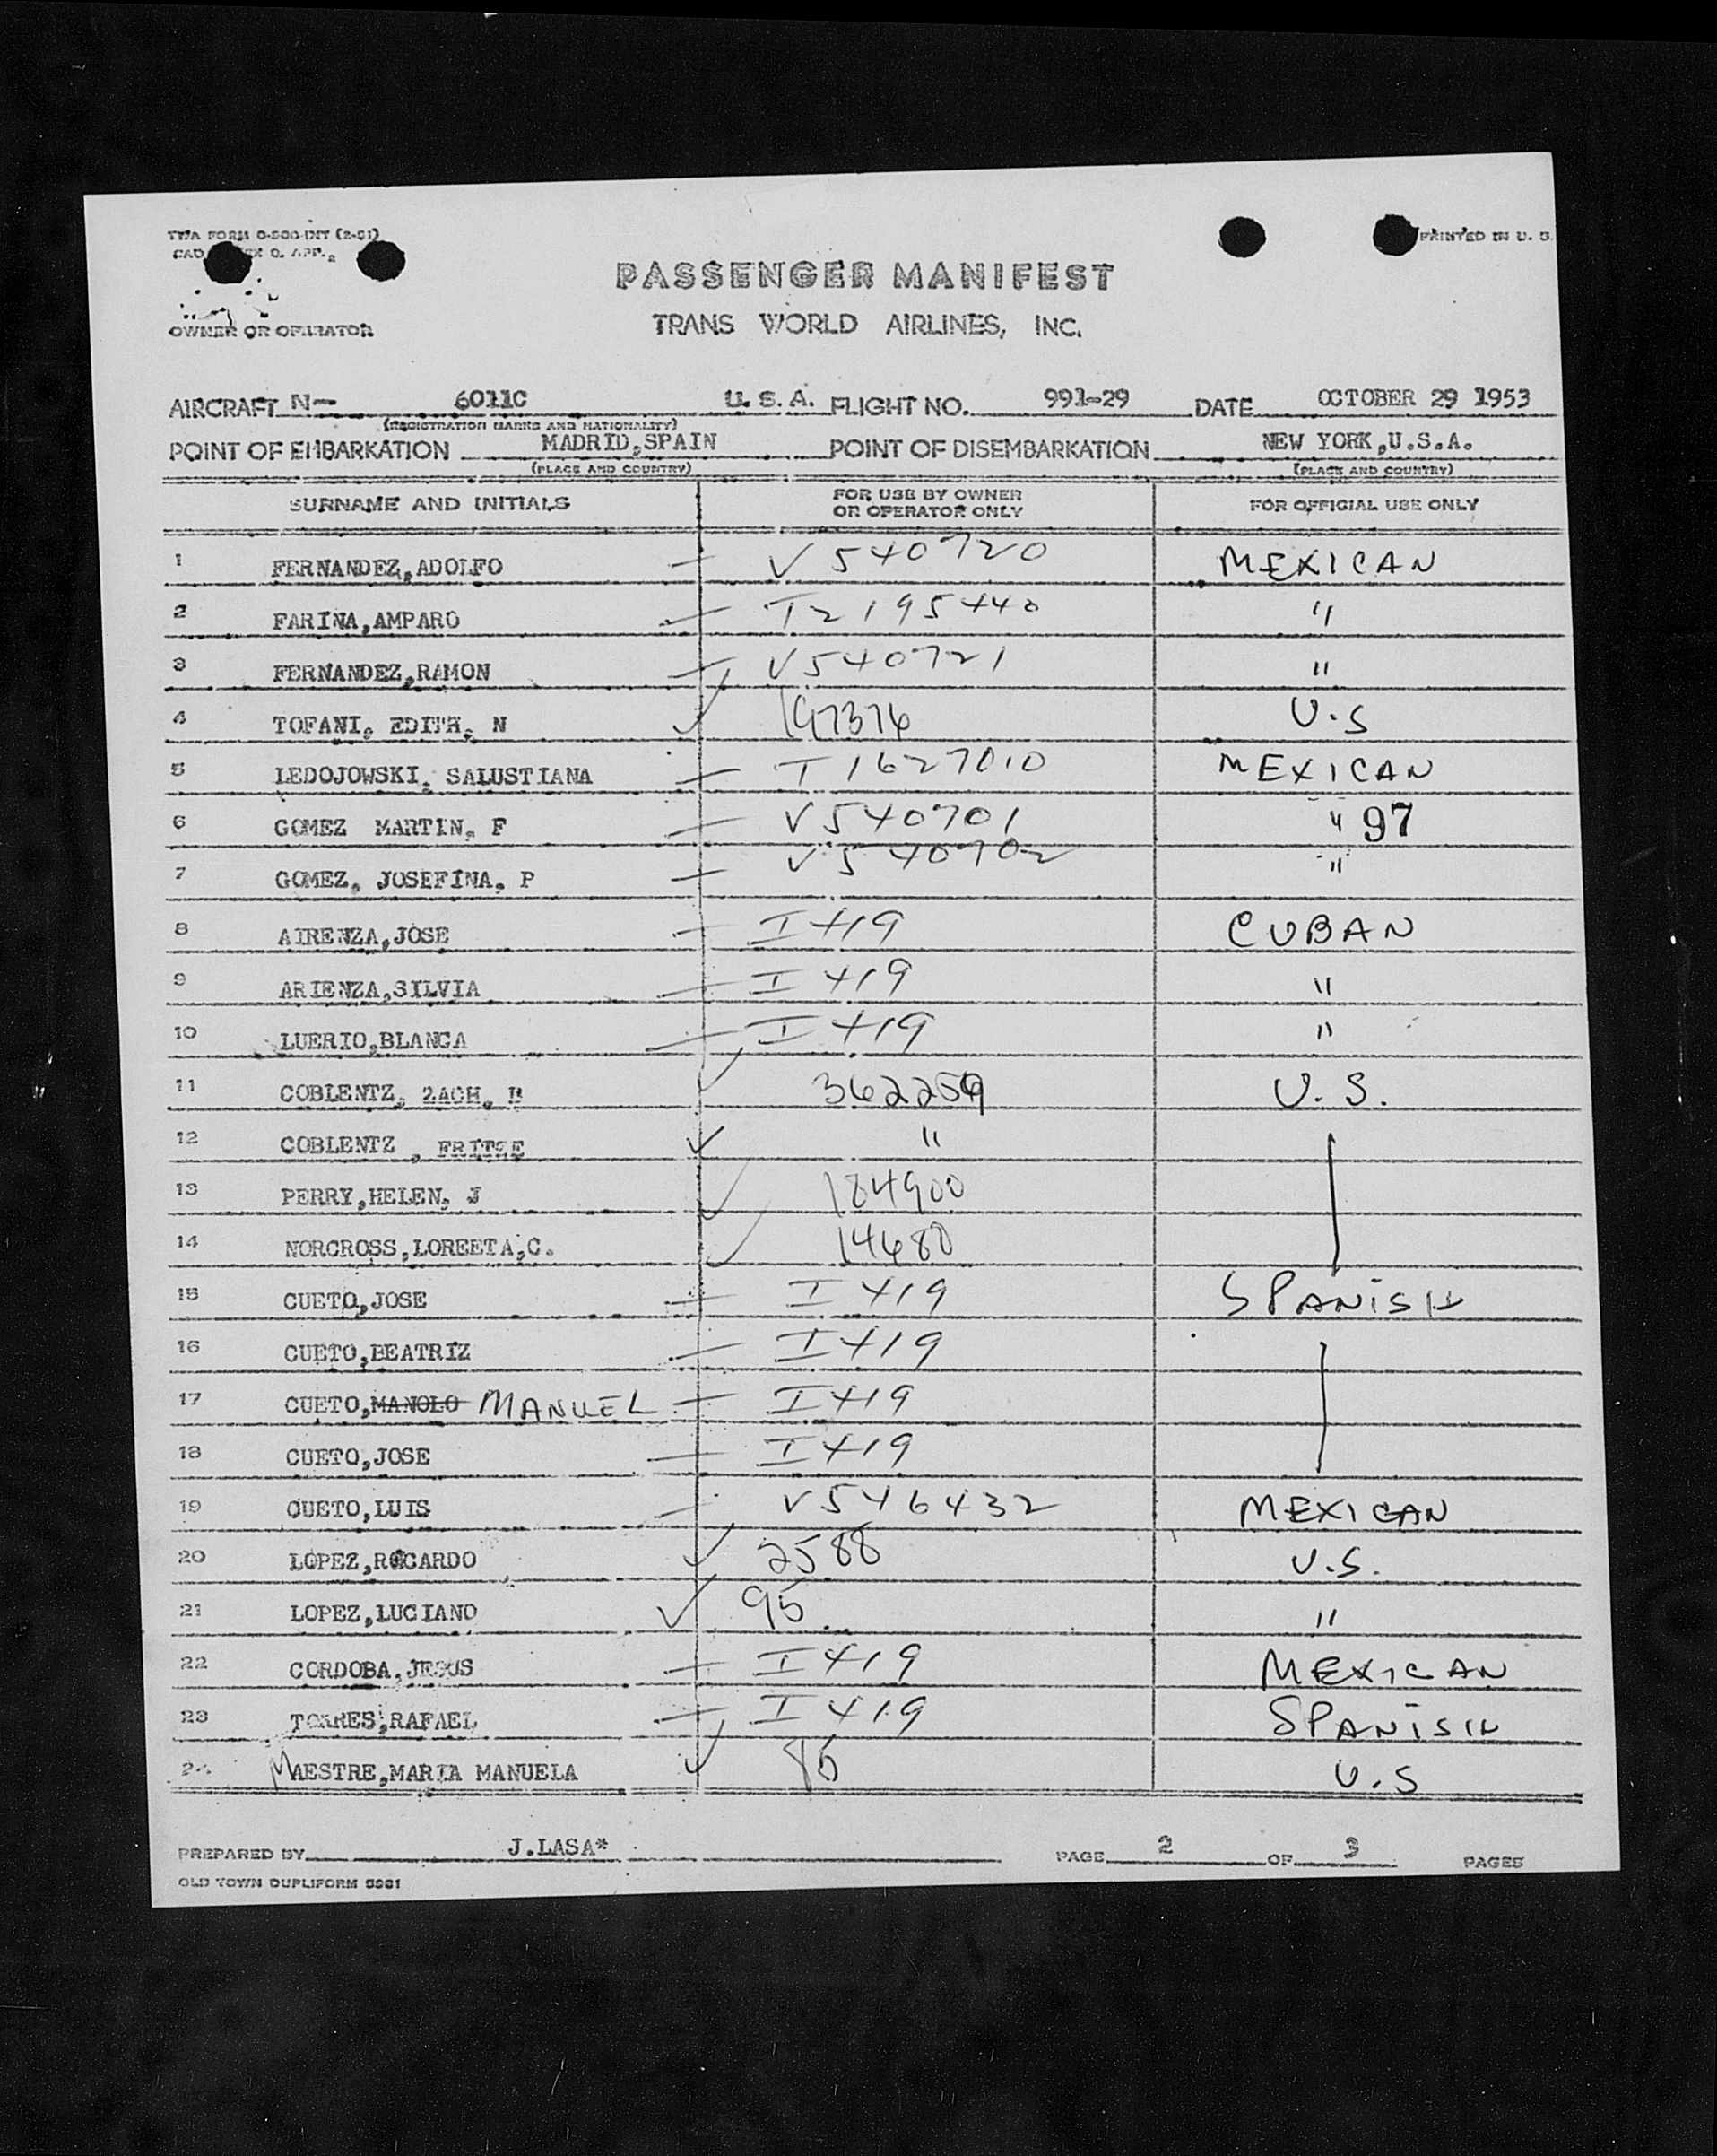 TWA FORM O-500-INT (2-51)
CAD O. APP.
PRINTED IN U. S.
PASSENGER MANIFEST
OWNER OR OPERATOR
TRANS WORLD AIRLINES, INC.
AIRCRAFT N- 6011C U. S. A. FLIGHT NO. 991-29 DATE OCTOBER 29 1953
(REGISTRATION MARKS AND NATIONALITY)
POINT OF EMBARKATION MADRID,SPAIN POINT OF DISEMBARKATION NEW YORK,U.S.A.
(PLACE AND COUNTRY) (PLACE AND COUNTRY)
SURNAME AND INITIALS FOR USE BY OWNER OR OPERATOR ONLY FOR OFFICIAL USE ONLY
1 FERNANDEZ,ADOLFO — V 540720 MEXICAN
2 FARINA,AMPARO — T2195440 "
3 FERNANDEZ,RAMON — V540721 "
4 TOFANI, EDITH, N ✓ 197376 U.S
5 LEDOJOWSKI, SALUSTIANA — T 1627010 MEXICAN
6 GOMEZ MARTIN, F — V540701 " 97
7 GOMEZ, JOSEFINA, P — V540702 "
8 AIRENZA,JOSE — I 419 CUBAN
9 ARIENZA,SILVIA — I 419 "
10 LUERIO,BLANCA — I 419 "
11 COBLENTZ, 2ACH, ✓ U. S.
12 COBLENTZ , ✓ "
13 PERRY,HELEN, J ✓ 184900
14 NORCROSS,LOREETA,C. ✓ 14680
15 CUETO,JOSE — I 419 SPANISH
16 CUETO,BEATRIZ — I 419
17 CUETO,MANOLO MANUEL — I 419
18 CUETO,JOSE — I 419
19 CUETO,LUIS — V546432 MEXICAN
20 LOPEZ,RICARDO ✓ 2588 U.S.
21 LOPEZ,LUCIANO ✓ 95 "
22 CORDOBA,JESUS — I 419 MEXICAN
23 TORRES,RAFAEL — I 419 SPANISH
24 MAESTRE,MARIA MANUELA ✓ U.S
PREPARED BY J.LASA* PAGE 2 OF 3 PAGES
OLD TOWN DUPLIFORM 5981